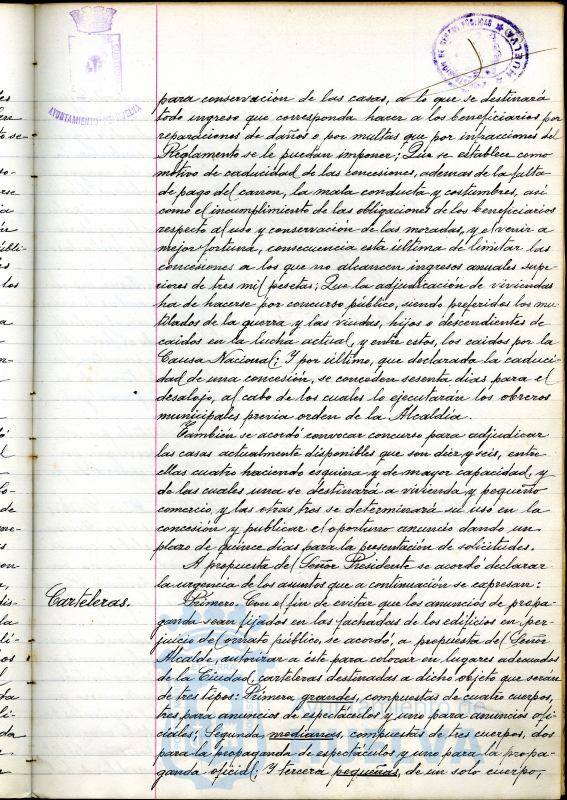 AYUNTAMIENTO DE HUELVA
HUELVA
para conservación de las casas, a lo que se destinará
todo ingreso que corresponda hacer a los beneficiarios por
reparaciones de daños o por multas que por infracciones del
Reglamento se le puedan imponer; Que se establece como
motivo de caducidad de las concesiones, además de la falta
de pago del canon, la mala conducta y costumbres, así
como el incumplimiento de las obligaciones de los beneficiarios
respecto al uso y conservación de las moradas, y el venir a
mejor fortuna, consecuencia esta última de limitar las
concesiones a los que no alcancen ingresos anuales supe-
riores de tres mil pesetas; Que la adjudicación de viviendas
ha de hacerse por concurso público, siendo preferidos los mu-
tilados de la guerra y las viudas, hijos o descendientes de
caidos en la lucha actual, y entre estos, los caidos por la
Causa Nacional; Y por último, que declarada la caduci-
dad de una concesión, se conceden sesenta dias para el
desalojo, al cabo de los cuales lo ejecutarán los obreros
municipales previa orden de la Alcaldía.
También se acordó convocar concurso para adjudicar
las casas actualmente disponibles que son diez y seis, entre
ellas cuatro haciendo esquina y de mayor capacidad, y
de las cuales una se destinará a vivienda y pequeño
comercio, y las otras tres se determinará su uso en la
concesión y publicar el oportuno anuncio dando un
plazo de quince dias para la presentación de solicitudes.
A propuesta del Señor Presidente se acordó declarar
la urgencia de los asuntos que a continuación se expresan:
Carteleras.
Primero. Con el fin de evitar que los anuncios de propa-
ganda sean fijados en las fachadas de los edificios en per-
juicio del ornato público, se acordó, a propuesta del Señor
Alcalde, autorizar a éste para colocar en lugares adecuados
de la Ciudad, carteleras destinadas a dicho objeto que serán
de tres tipos: Primera, grandes, compuestas de cuatro cuerpos,
tres para anuncios de espectáculos y uno para anuncios ofi-
ciales; Segunda, medianas, compuestas de tres cuerpos, dos
para la propaganda de espectáculos y uno para la propa-
ganda oficial; Y tercera pequeñas, de un solo cuerpo,
Ayuntamiento de